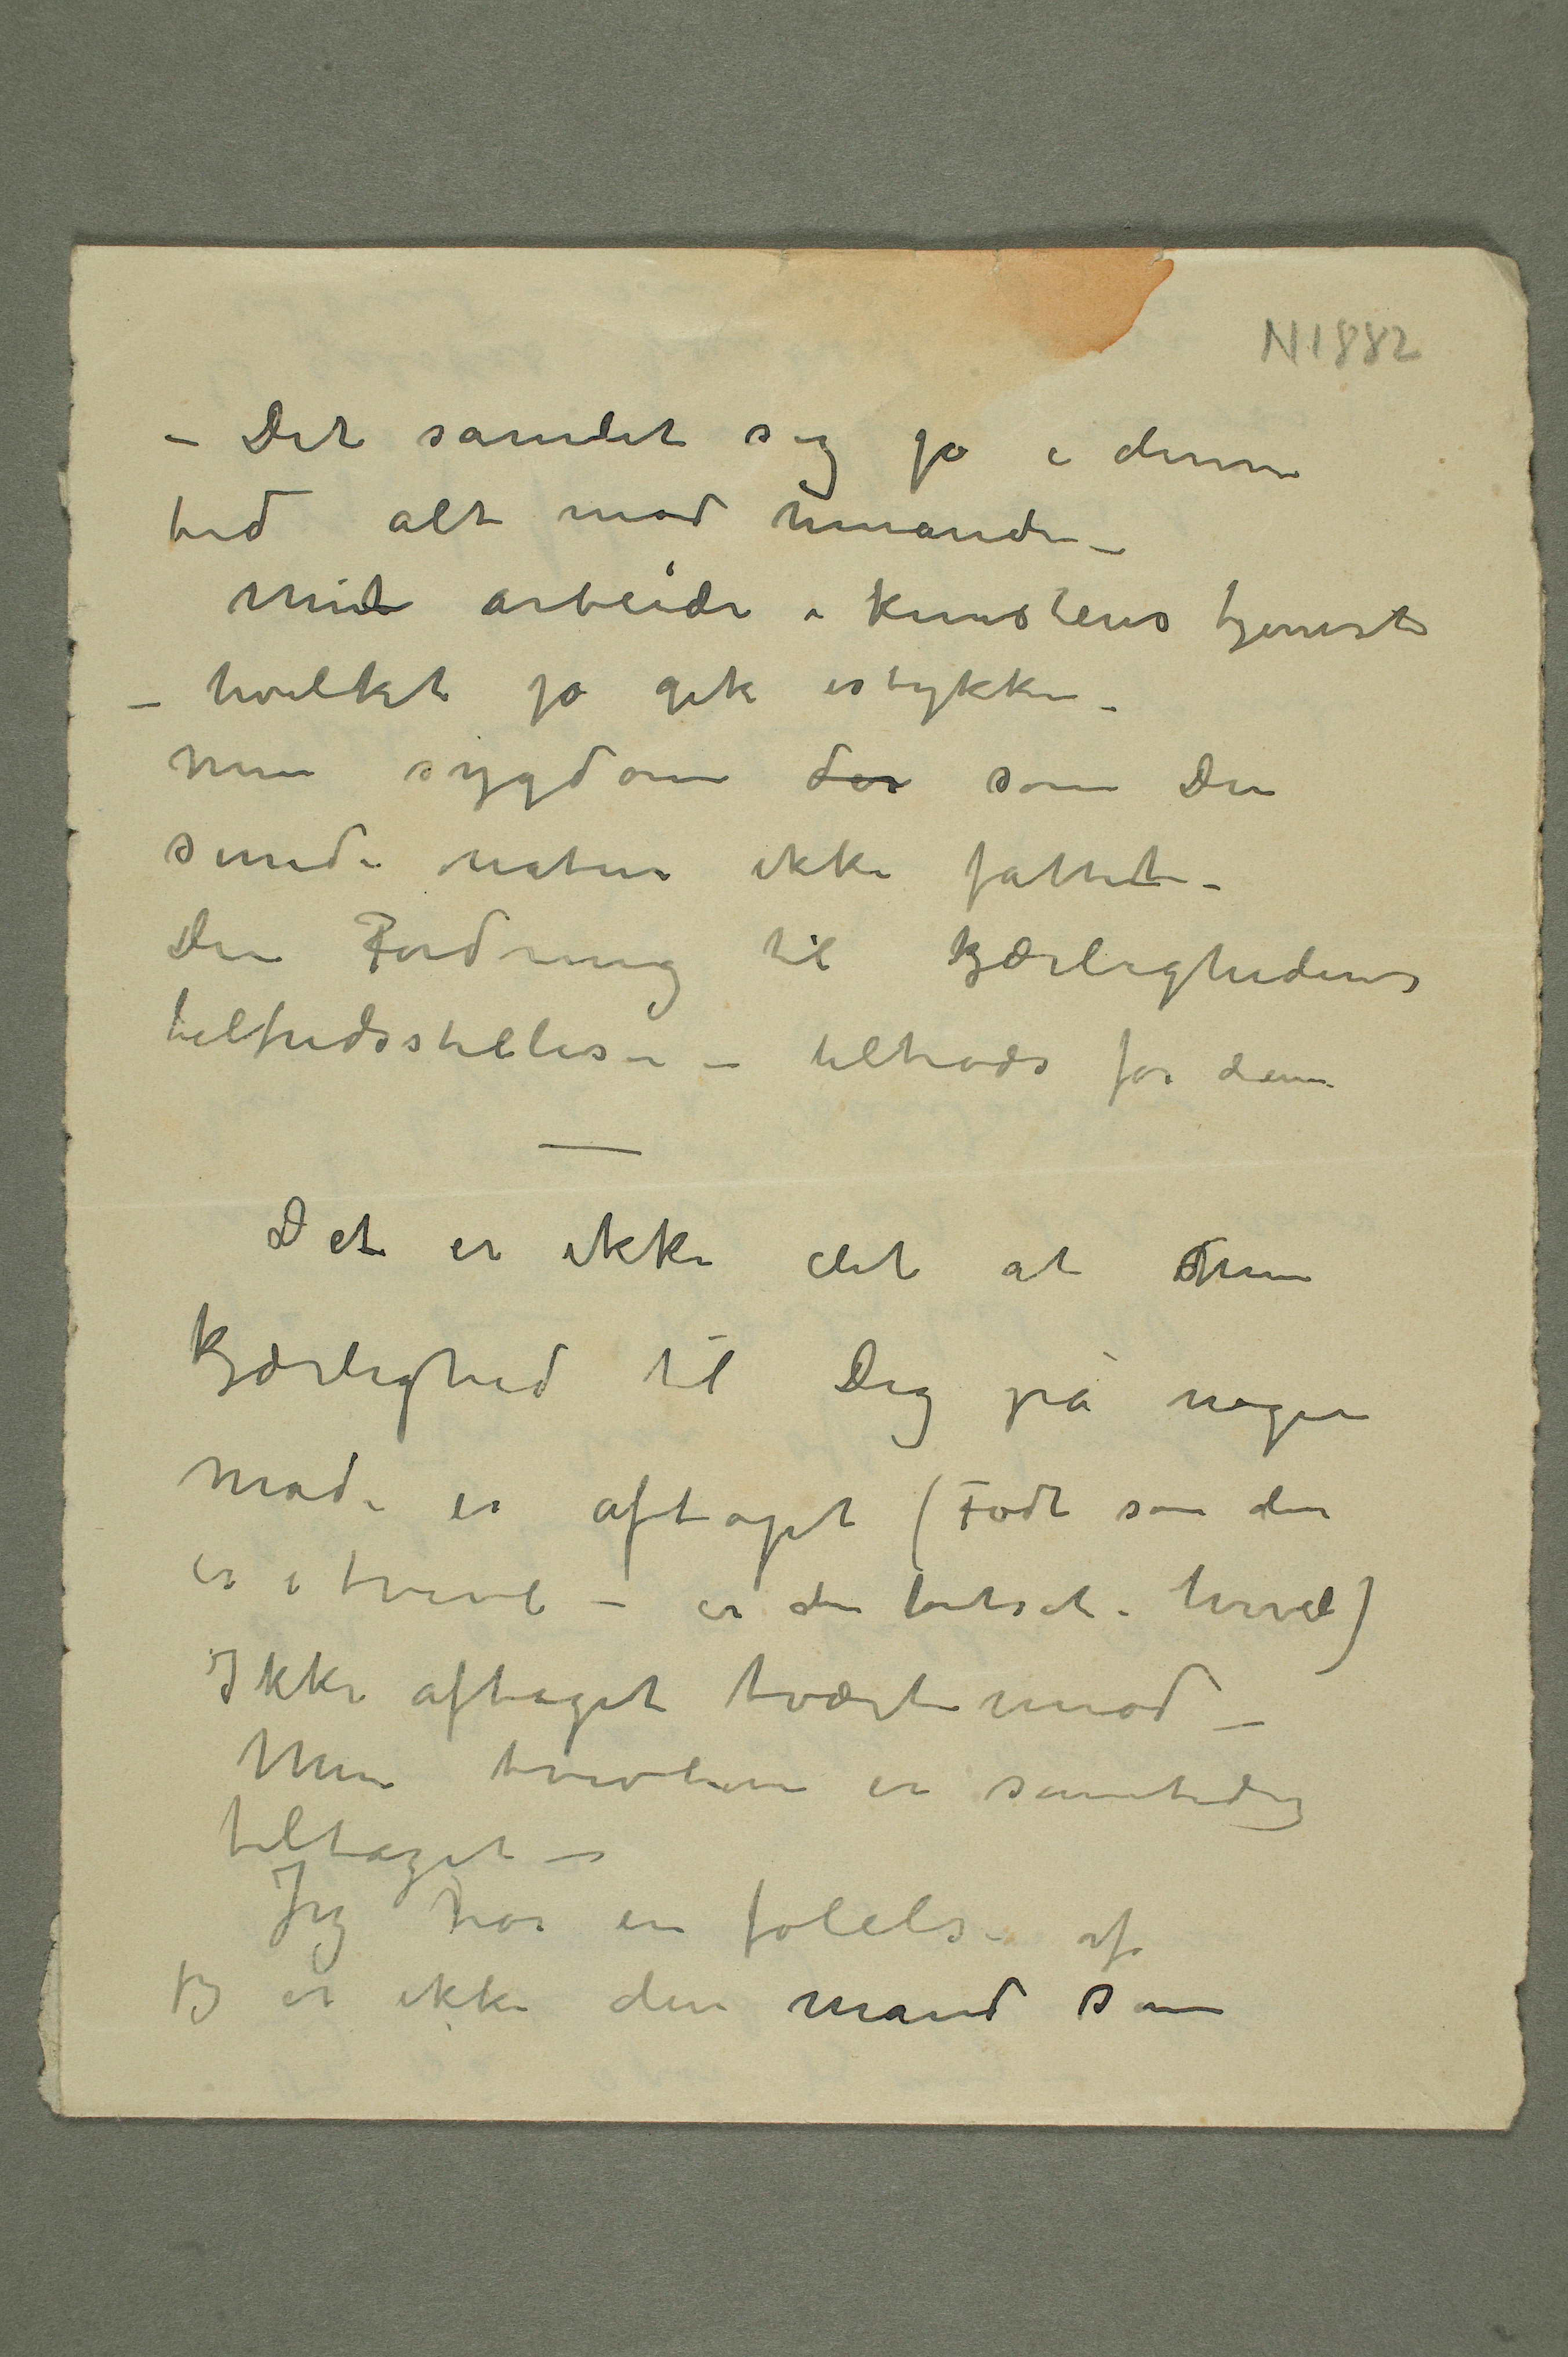 N 1882
– Det samlet sig jo i denne
tid alt mod hinanden –
Mit arbeide i kunstens tjeneste
– hvilket jo gik istykker –
min sygdom der som Din
sunde natur ikke fattet –
Din Fordring til kjærlighedens
tilfredsstillelse – tiltrods for den
—
Det er ikke det at min
kjærlighed til Dig på nogen
måde er aftaget (Født som den
er i tvivl – er den fortsat i tvivl)
Ikke aftaget tværtimod –
Men tvivlen er samtidig
tiltaget –
Jeg har en følelse af
jeg er ikke den mand som